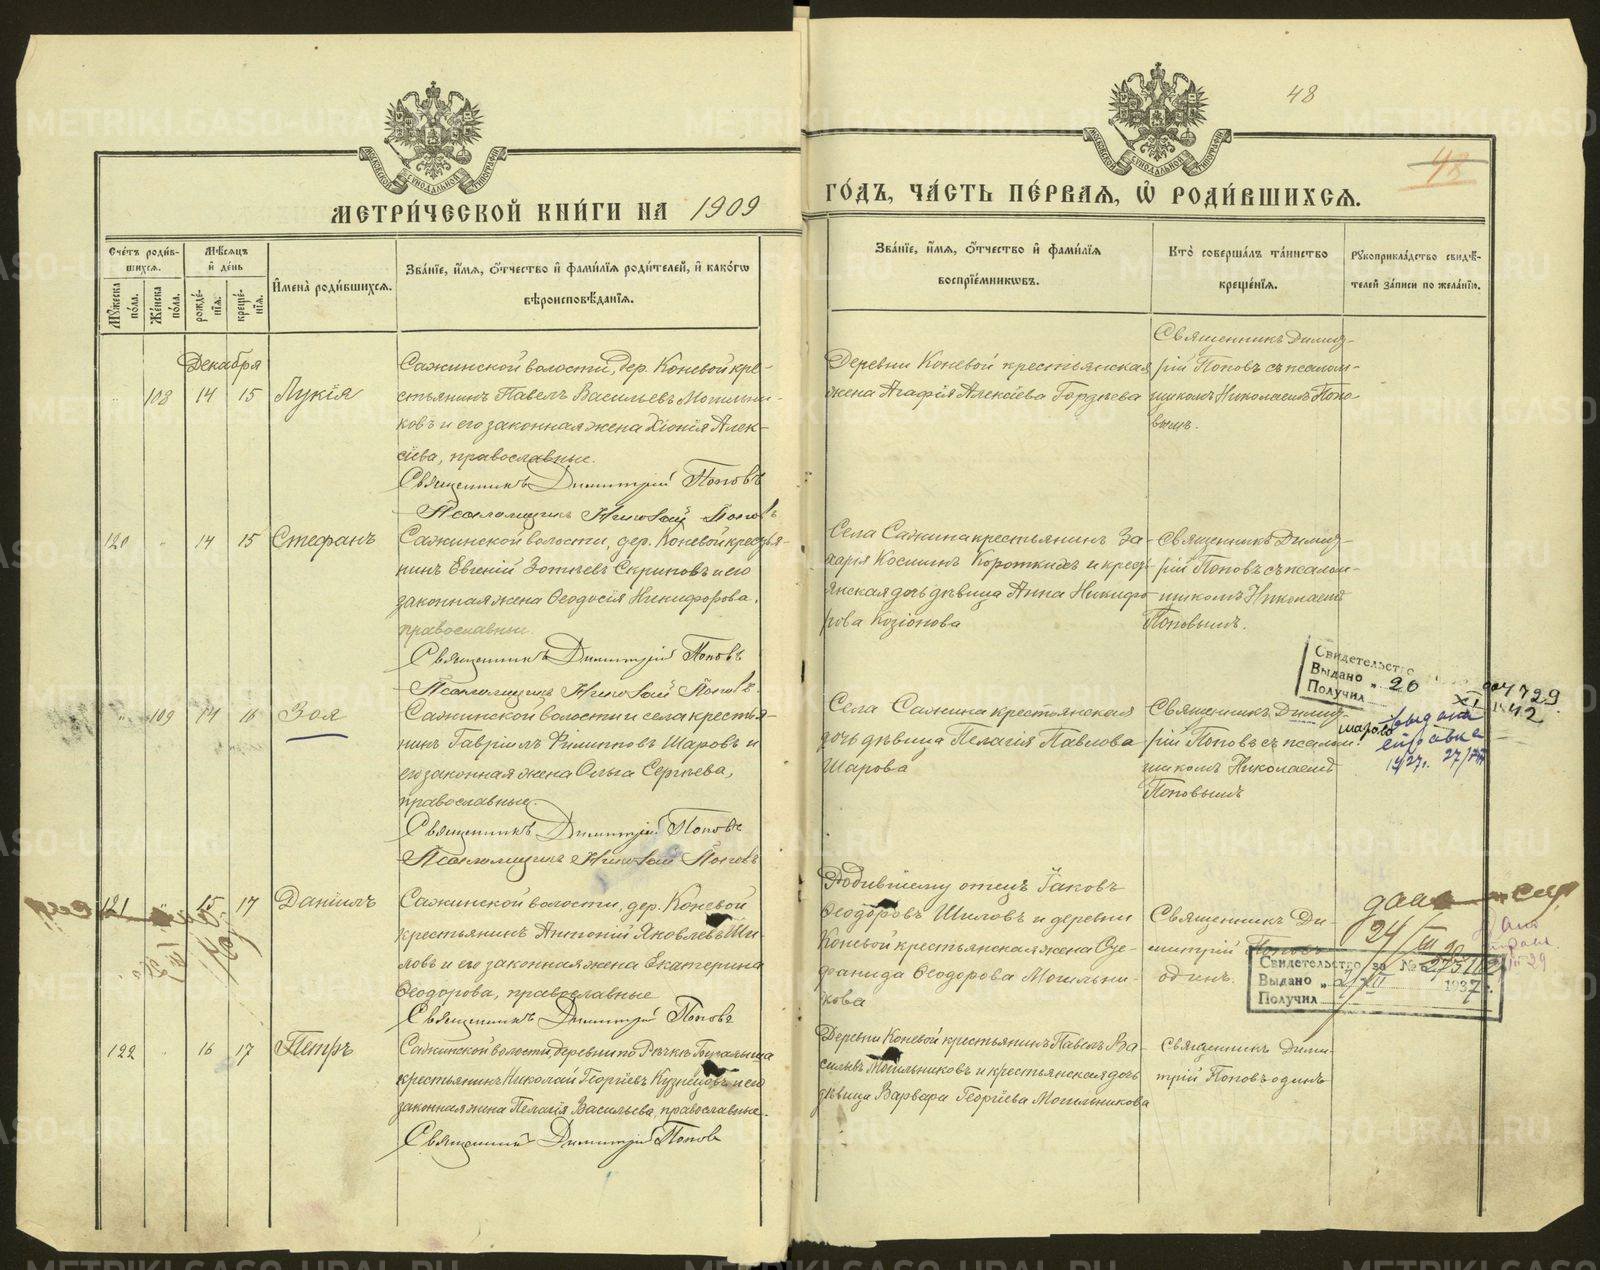 МОСКОВСКОЙ СѴНОДАЛЬНОЙ ТИПОГРАФІИ
МОСКОВСКОЙ СѴНОДАЛЬНОЙ ТИПОГРАФІИ
48
48
МЕТРИ́ЧЕСКОЙ КНИ́ГИ НА 1909
ГО́ДЪ, ЧА́СТЬ ПЕ́РВАЯ, Ѽ РОДИ́ВШИХСЯ.
Сче́тъ роди́в-
шихся.
Му́жеска по́ла.
Же́нска по́ла.
Мѣ́сяцъ
и҆ де́нь
рожде́-
нїя.
креще́-
нїя.
И҆мена̀ роди́вшихся.
Зва́нїе, и҆́мя, ѻ҆́тчество и҆ фамѝлїя роди́телей, и҆ како́гѡ
вѣроисповѣ́данїя.
Зва́нїе, и҆́мя, ѻ҆́тчество и҆ фамѝлїя
воспрїе́мникѡвъ.
Кто̀ соверша́лъ та́инство
креще́нїя.
Рꙋкоприкла́дство свидѣ́-
телей за́писи по жела́нїю.
Декабря
108 14 15 Лукія
Сажинской волости, дер. Коневой кре-
стьянинъ Павелъ Васильевъ Могильни-
ковъ и его законная жена Хіонія Алек-
сіева, православные.
Священникъ Димитрій Поповъ
Псаломщикъ Николай Поповъ
Деревни Коневой крестьянская
жена Агафія Алексіева Гордѣева
Священникъ Димит-
рій Поповъ съ псалом-
щикомъ Николаемъ Попо-
вымъ.
120 14 15 Стефанъ
Сажинской волости, дер. Коневой кресть-
нинъ Евгеній Зотѣевъ Скриповъ и его
законная жена Ѳеодосія Никифорова,
православные.
Священникъ Димитрій Поповъ
Псаломщикъ Николай Поповъ.
Села Сажина крестьянинъ За-
харія Косминъ Короткихъ и крест-
янская дочь дѣвица Анна Никифо-
рова Козіонова
Священникъ Димит-
рій Поповъ съ псалом-
щикомъ Николаемъ
Поповымъ.
109 14 16 Зоя
Сажинской волости и села крестья-
нинъ Гавріилъ Филипповъ Шаровъ и
его законная жена Ольга Сергѣева,
православные.
Священникъ Димитрій Поповъ
Псаломщикъ Николай Поповъ
Села Сажина крестьянская
дочь дѣвица Пелагія Павлова
Шарова
Священникъ Димит-
рій Поповъ съ псалом-
щикомъ Николаемъ
Поповымъ
Свидетельство
Выдано „ 20 XI 1942
Получил
121 15 17 Даніилъ
Сажинской волости, дер. Коневой
крестьянинъ Антоній Яковлевъ Ши-
ловъ и его законная жена Екатерина
Ѳеодорова, православные
Священникъ Димитрій Поповъ
Родившему отецъ Іаковъ
Ѳеодоровъ Шиловъ и деревни
Коневой крестьянская жена
Ѳеодорова Могильни-
кова
Священникъ Ди-
митрій Поповъ
одинъ.
Свидетельство за №
Выдано „ 1937 г.
Получил
122 16 17 Петръ
Сажинской волости деревни по Рѣчкѣ
крестьянинъ Николай Георгіевъ Кузнецовъ и его
законная жена Пелагія Васильева, православные.
Священникъ Димитрій Поповъ
Деревни Коневой крестьянинъ Павелъ Ва-
сильевъ Могильниковъ и крестьянская дочь
дѣвица Варвара Георгіева Могильникова
Священникъ Дими-
трій Поповъ одинъ
METRIKI.GASO-URAL.RU